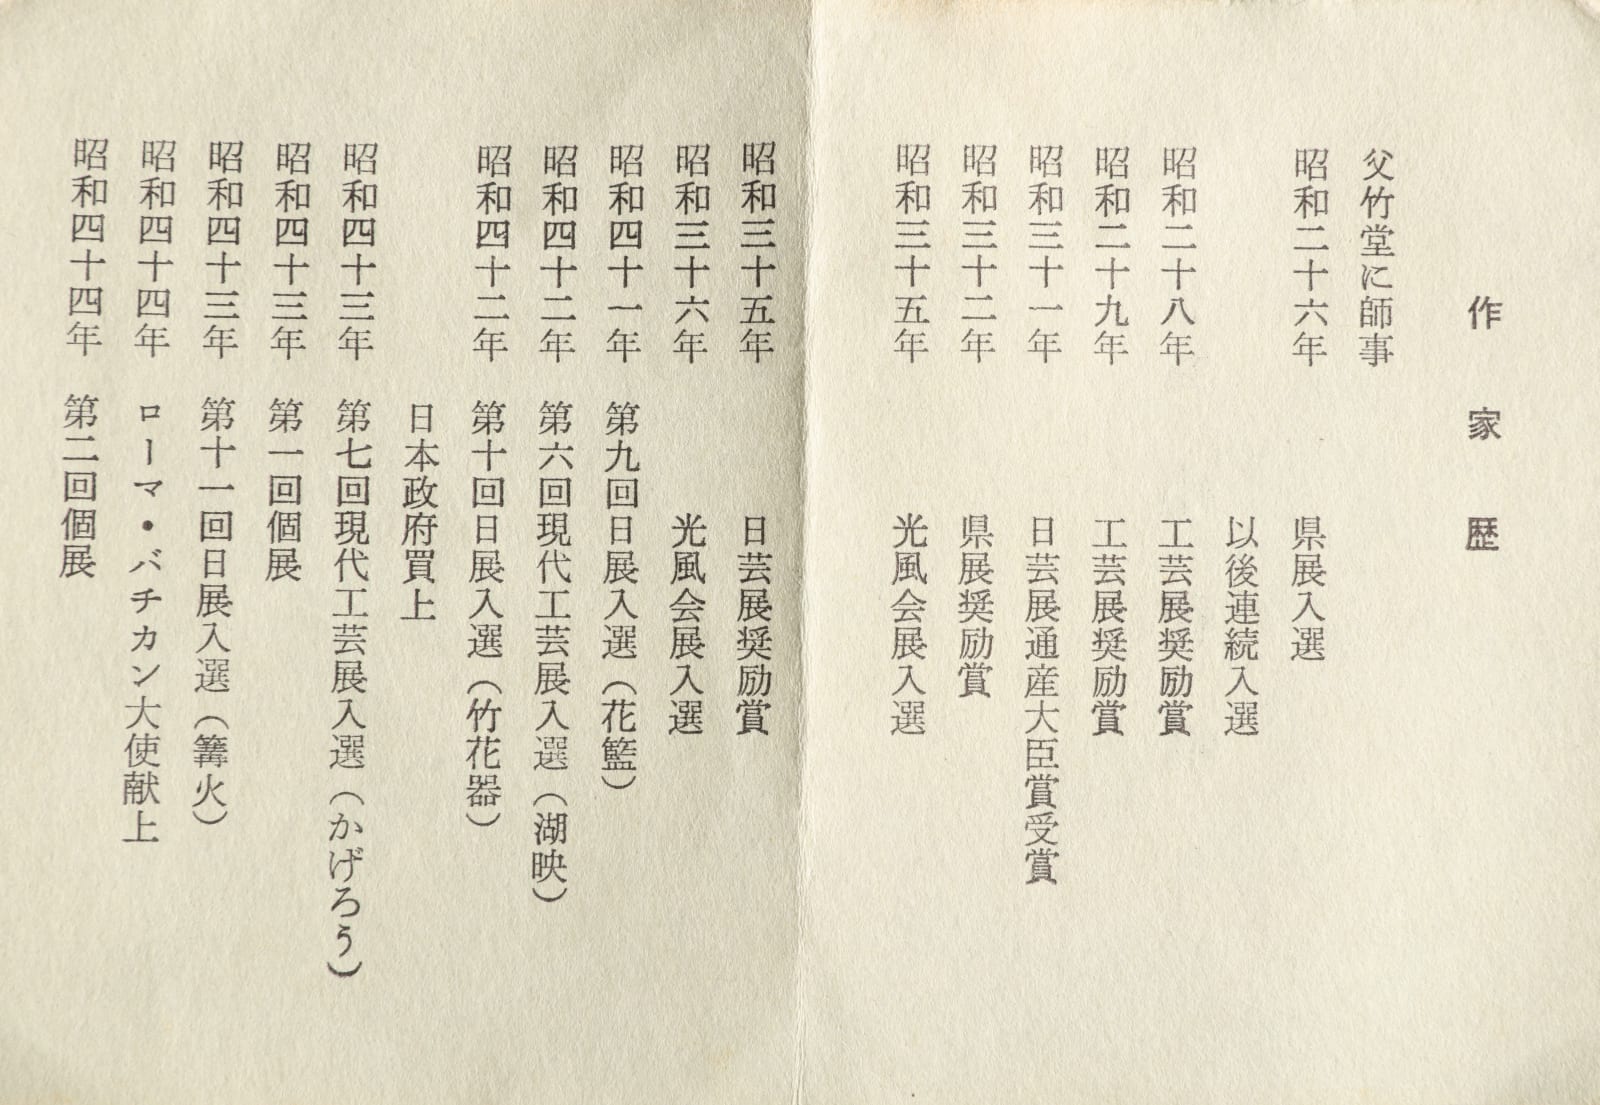 作家歴
父竹堂に師事
昭和二十六年 県展入選
以後連続入選
昭和二十八年 工芸展奨励賞
昭和二十九年 工芸展奨励賞
昭和三十一年 日芸展通産大臣賞受賞
昭和三十二年 県展奨励賞
昭和三十五年 光風会展入選
昭和三十五年 日芸展奨励賞
昭和三十六年 光風会展入選
昭和四十一年 第九回日展入選(花籃)
昭和四十二年 第六回現代工芸展入選(湖映)
昭和四十二年 第十回日展入選(竹花器)
日本政府買上
昭和四十三年 第七回現代工芸展入選(かげろう)
昭和四十三年 第一回個展
昭和四十三年 第十一回日展入選(篝火)
昭和四十四年 ローマ・バチカン大使献上
昭和四十四年 第二回個展